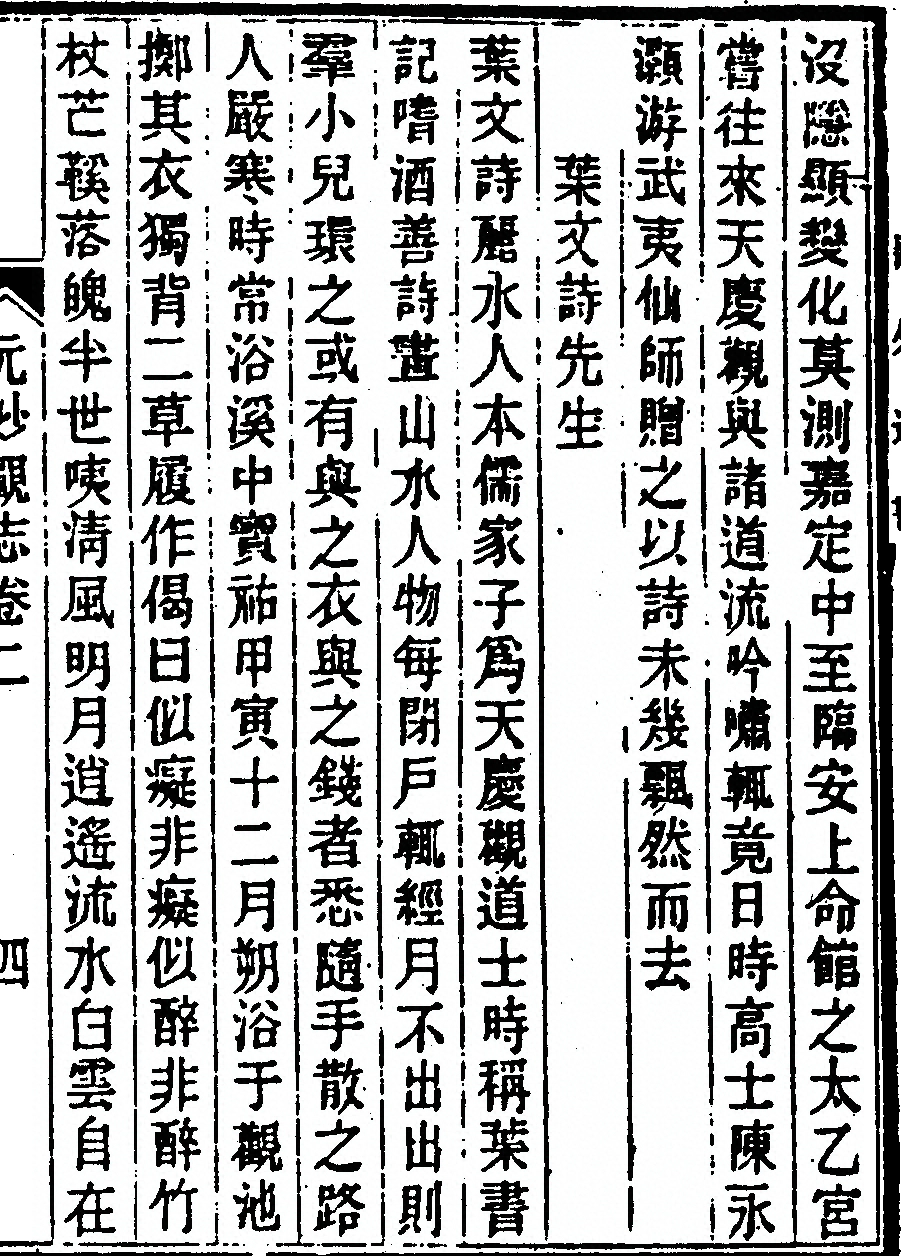 沒隱顯變化莫測嘉定中至臨安上命館之太乙宮
嘗往來天慶觀與諸道流吟嘯輒竟日時高士陳永
灝游武夷仙師贈之以詩未幾飄然而去
葉文詩先生
葉文詩麗水人本儒家子爲天慶觀道士時稱葉書
記嗜酒善詩畫山水人物每閉戶輒經月不出出則
羣小兒環之或有與之衣與之錢者悉隨手散之路
人嚴寒時常浴溪中寶祐甲寅十二月朔浴于觀池
擲其衣獨背二草履作偈曰似癡非癡似醉非醉竹
杖芒鞵落魄半世咦淸風明月逍遙流水白雲自在
元妙觀志卷二 四